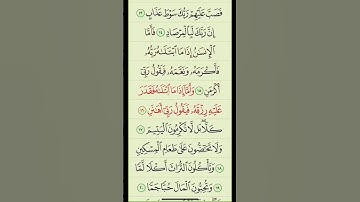 فَصَبَّ عَلَيْهِمْ رَبُّكَ سَوْطَ عَذَابٍ ١٣
إِنَّ رَبَّكَ لَبِٱلْمِرْصَادِ ١٤ فَأَمَّا
ٱلْإِنسَٰنُ إِذَا مَا ٱبْتَلَىٰهُ رَبُّهُۥ
فَأَكْرَمَهُۥ وَنَعَّمَهُۥ فَيَقُولُ رَبِّىٓ
أَكْرَمَنِ ١٥ وَأَمَّآ إِذَا مَا ٱبْتَلَىٰهُ فَقَدَرَ
عَلَيْهِ رِزْقَهُۥ فَيَقُولُ رَبِّىٓ أَهَٰنَنِ ١٦
كَلَّا ۖ بَل لَّا تُكْرِمُونَ ٱلْيَتِيمَ
١٧ وَلَا تَحَٰٓضُّونَ عَلَىٰ طَعَامِ ٱلْمِسْكِينِ
١٨ وَتَأْكُلُونَ ٱلتُّرَاثَ أَكْلًا لَّمًّا
١٩ وَتُحِبُّونَ ٱلْمَالَ حُبًّا جَمًّا ٢٠